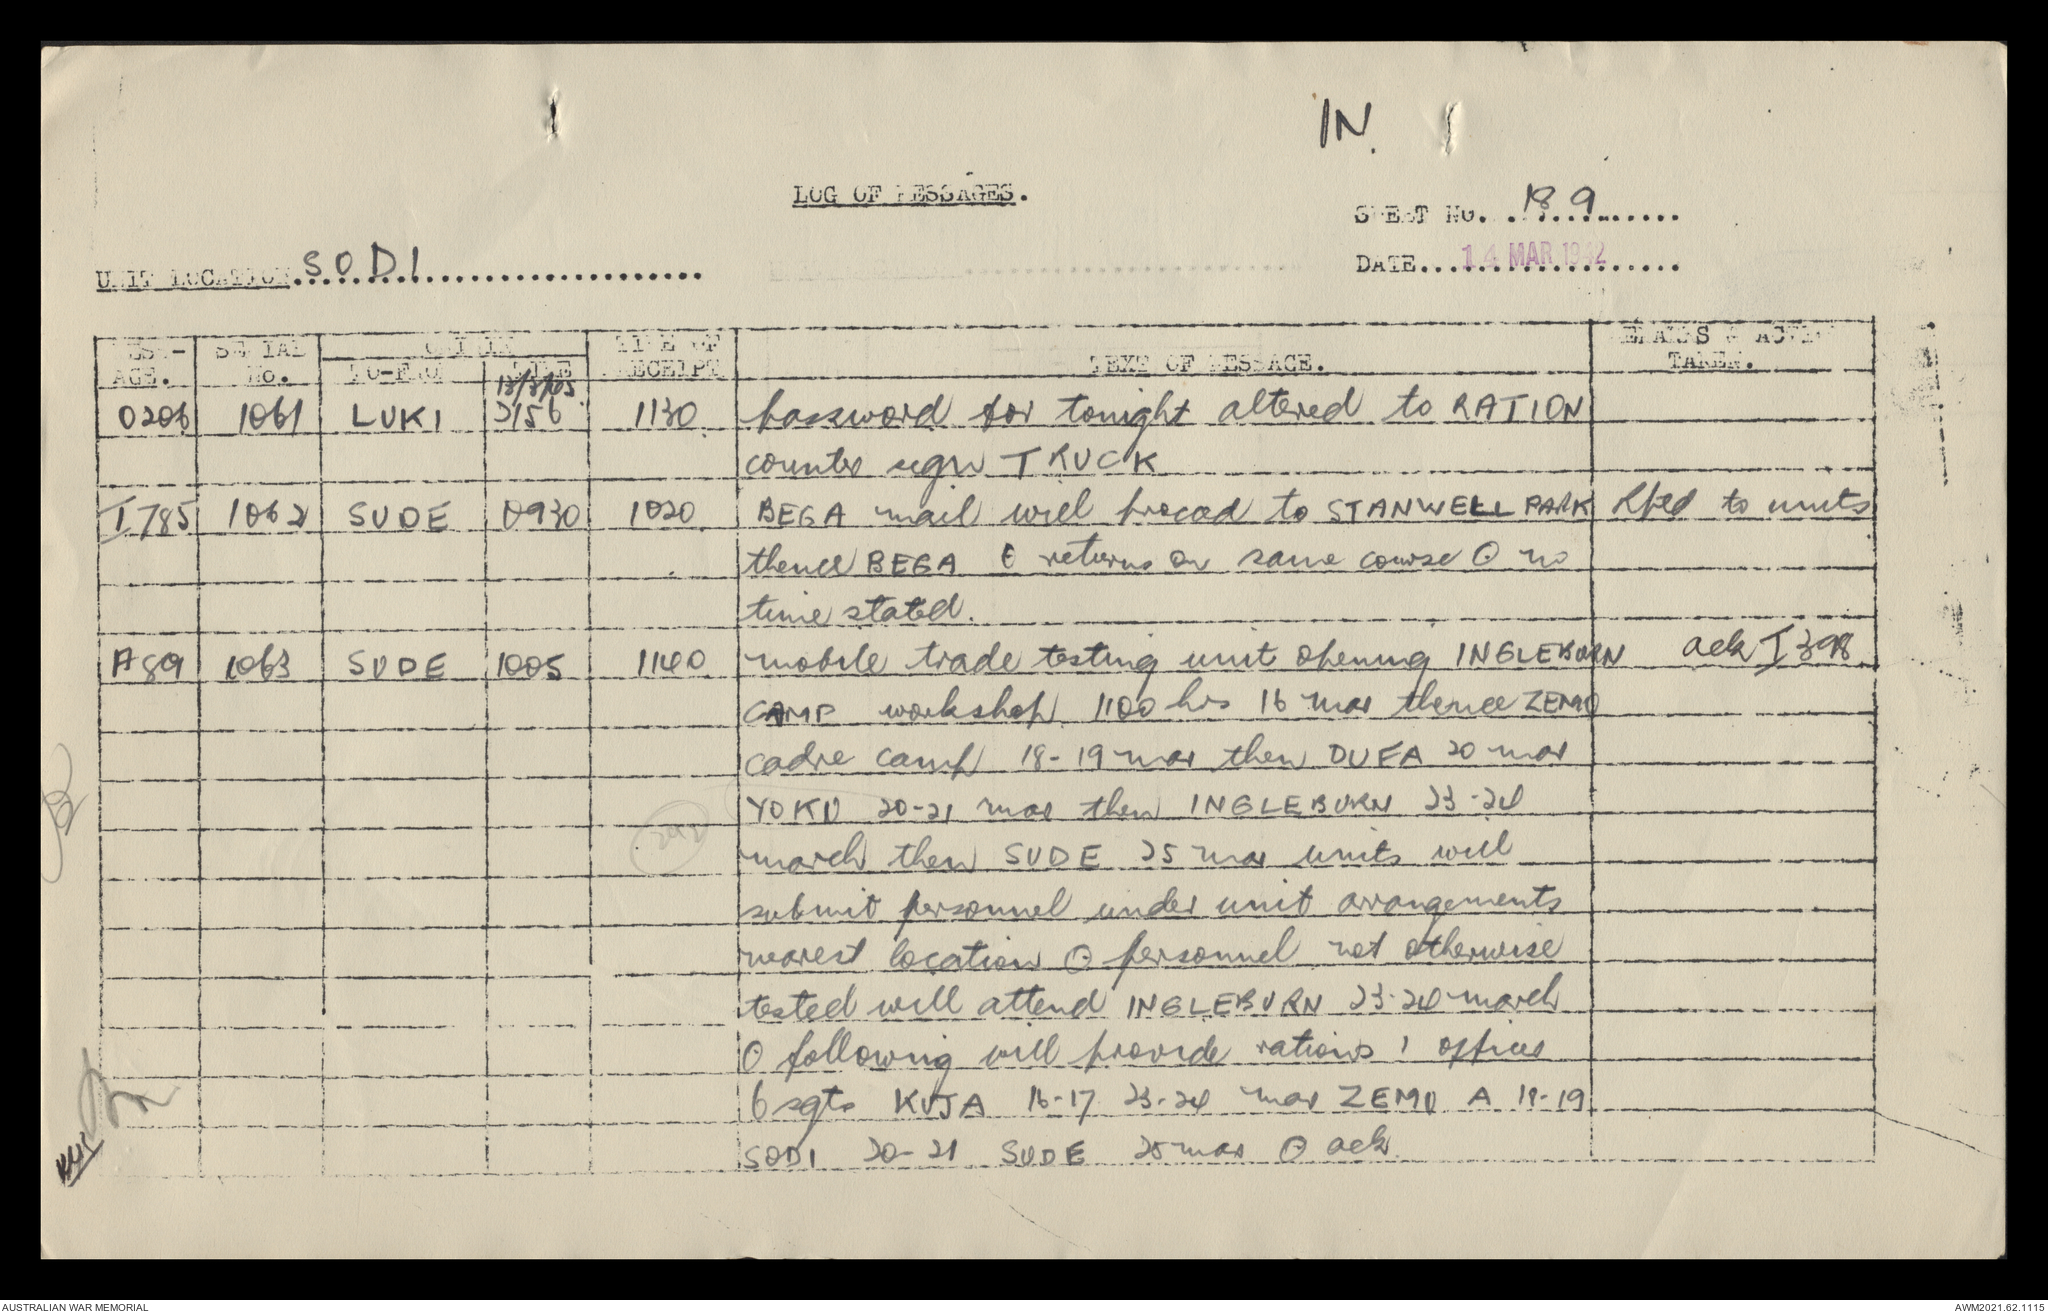 IN.
LOG OF MESSAGES.
SHEET NO. 189
UNIT LOCATION SODI
DATE 14 MAR 1942
MESS- SERIAL ORIGIN TIME OF REMARKS & ACTION
AGE. No. TO-FROM TIME RECEIPT TEXT OF MESSAGE. TAKEN.
0206 1061 LUKI 2156 1130 password for tonight altered to RATION
counter sign TRUCK
I785 1062 SUDE 0930 1020 BEGA mail will procad to STANWELL PARK Rptd to units
thence BEGA & returns on same course ʘ no
time stated.
A89 1063 SUDE 1005 1140 mobile trade testing unit opening INGLEBURN ack I 398
CAMP workshop 1100 hrs 16 mar thence ZEMO
cadre camp 18-19 mar then DUFA 20 mar
YOKU 20-21 mar then INGLEBURN 23-24
march then SUDE 25 mar units will
submit personnel under unit arrangements
nearest location ʘ personnel not otherwise
tested will attend INGLEBURN 23-24 march
ʘ following will provide rations 1 officer
6 sgts KUJA 16-17 23-24 mar ZEMO A 18-19
SODI 20-21 SUDE 25 mar ʘ ack
AUSTRALIAN WAR MEMORIAL
AWM2021.62.1115